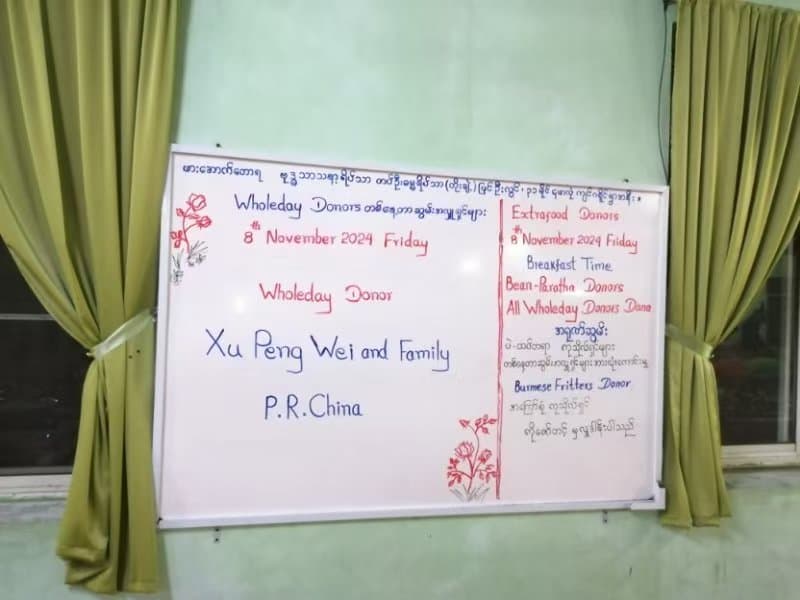 ဖားအောက်တောရ ဗုဒ္ဓသာသနာ့ရိပ်သာ
Wholeday Donors တစ်နေ့တာဆွမ်းအလှူရှင်များ
8th November 2024 Friday
Wholeday Donor
Xu Peng Wei and Family
P.R.China
Extrafood Donors
8th November 2024 Friday
Breakfast Time
Bean-Paratha Donors
All Wholeday Donors Dana
အရုဏ်ဆွမ်း
ပဲ-ထပ်တာရာ ကုသိုလ်ရှင်များ
Burmese Fritters Donor
အကြော်စုံ ကုသိုလ်ရှင်